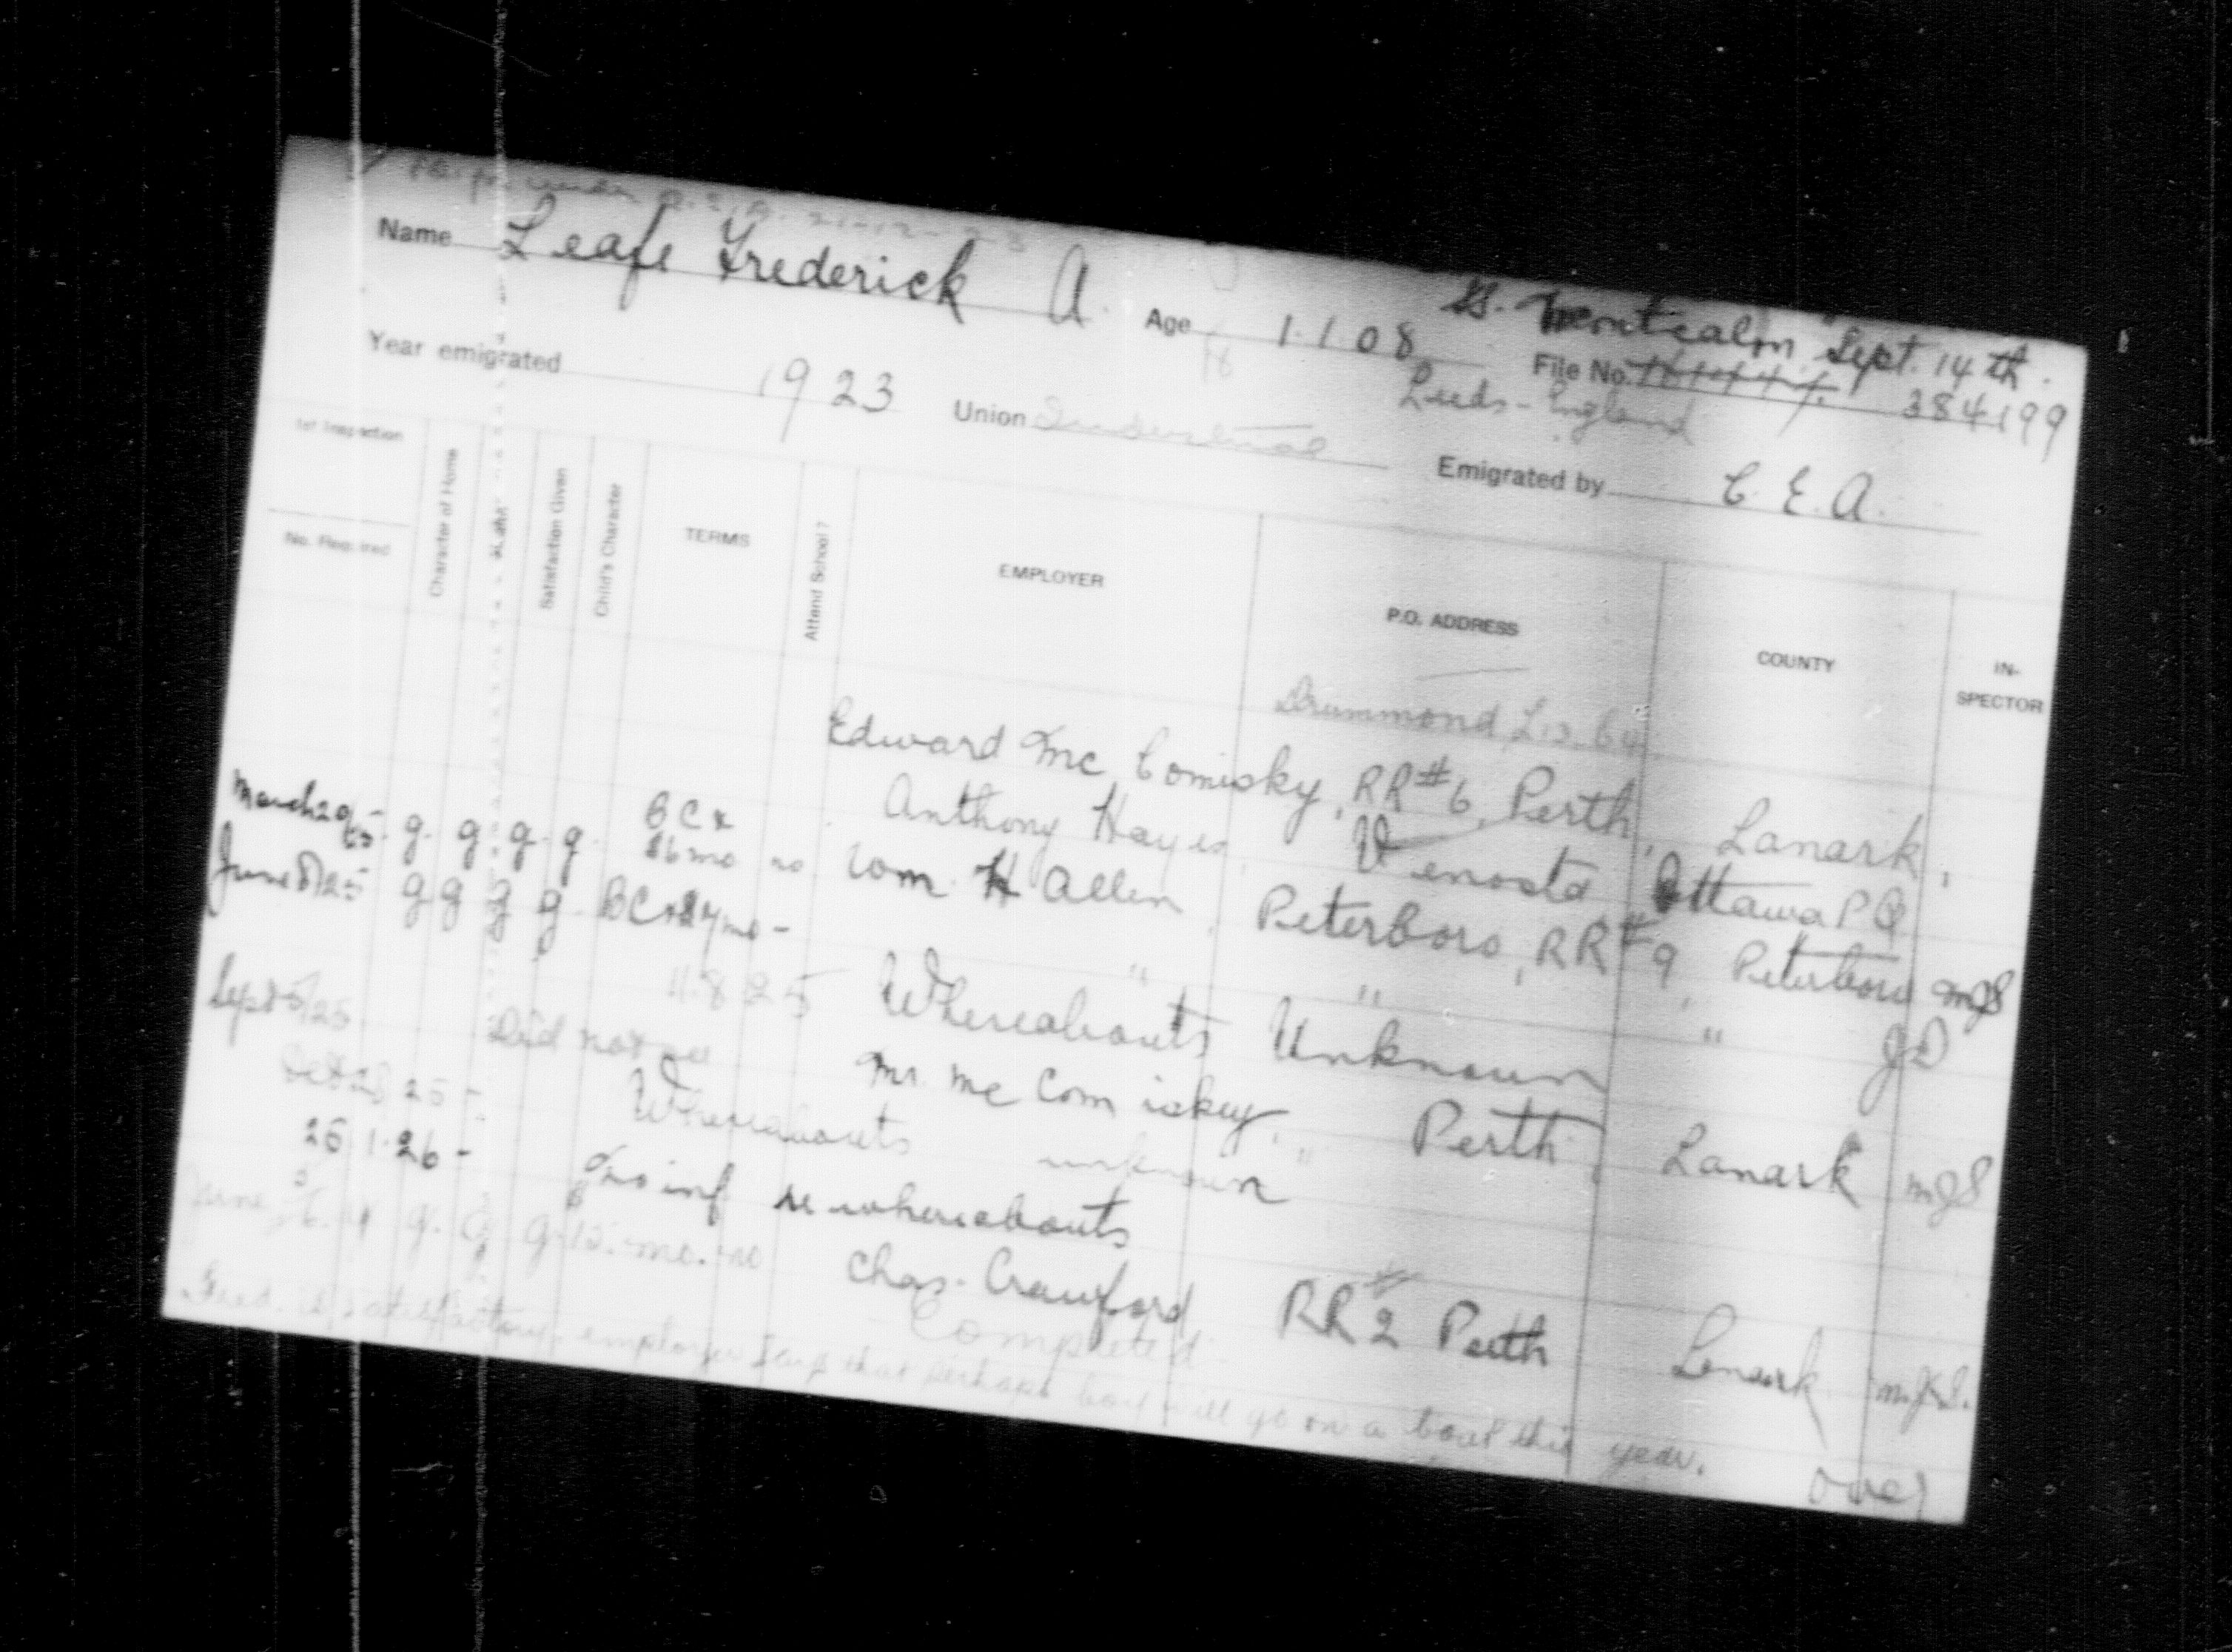 21-12-23
Name Leafe Frederick A. Age 1.1 08 SS. Montcalm Sept. 14th.
Year emigrated 1923 Union Industrial Leeds - England File No. 384199
Emigrated by C. E. A.
1st Inspection
No. Required
Character of Home
Health
Satisfaction Given
Child's Character
TERMS
Attend School?
EMPLOYER
P.O. ADDRESS
COUNTY
IN-
SPECTOR
Drummond
Edward McComisky, RR#6, Perth, Lanark,
Anthony Hayes, Venosta Ottawa P Q
March 29/25. g. g g. g. BC & $6 mo no Wm. H Allen, Peterboro, RR#9, Peterboro MJS
June 8/25 g g g g. BC & $4 mo - " " " JD
11.8.25 Whereabouts Unknown
Sept 5/25 Did not go Mr. McComiskey, Perth, Lanark MJS
Oct 28 25 - Whereabouts unknown
25.1.26 - No inf re whereabouts
June g. g. g. 15. mo. no Chas. Crawford, RR#2 Perth Lanark M.J.S.
Completed
Fred. is satisfactory, employer says that perhaps boy will go on a boat this year.
over